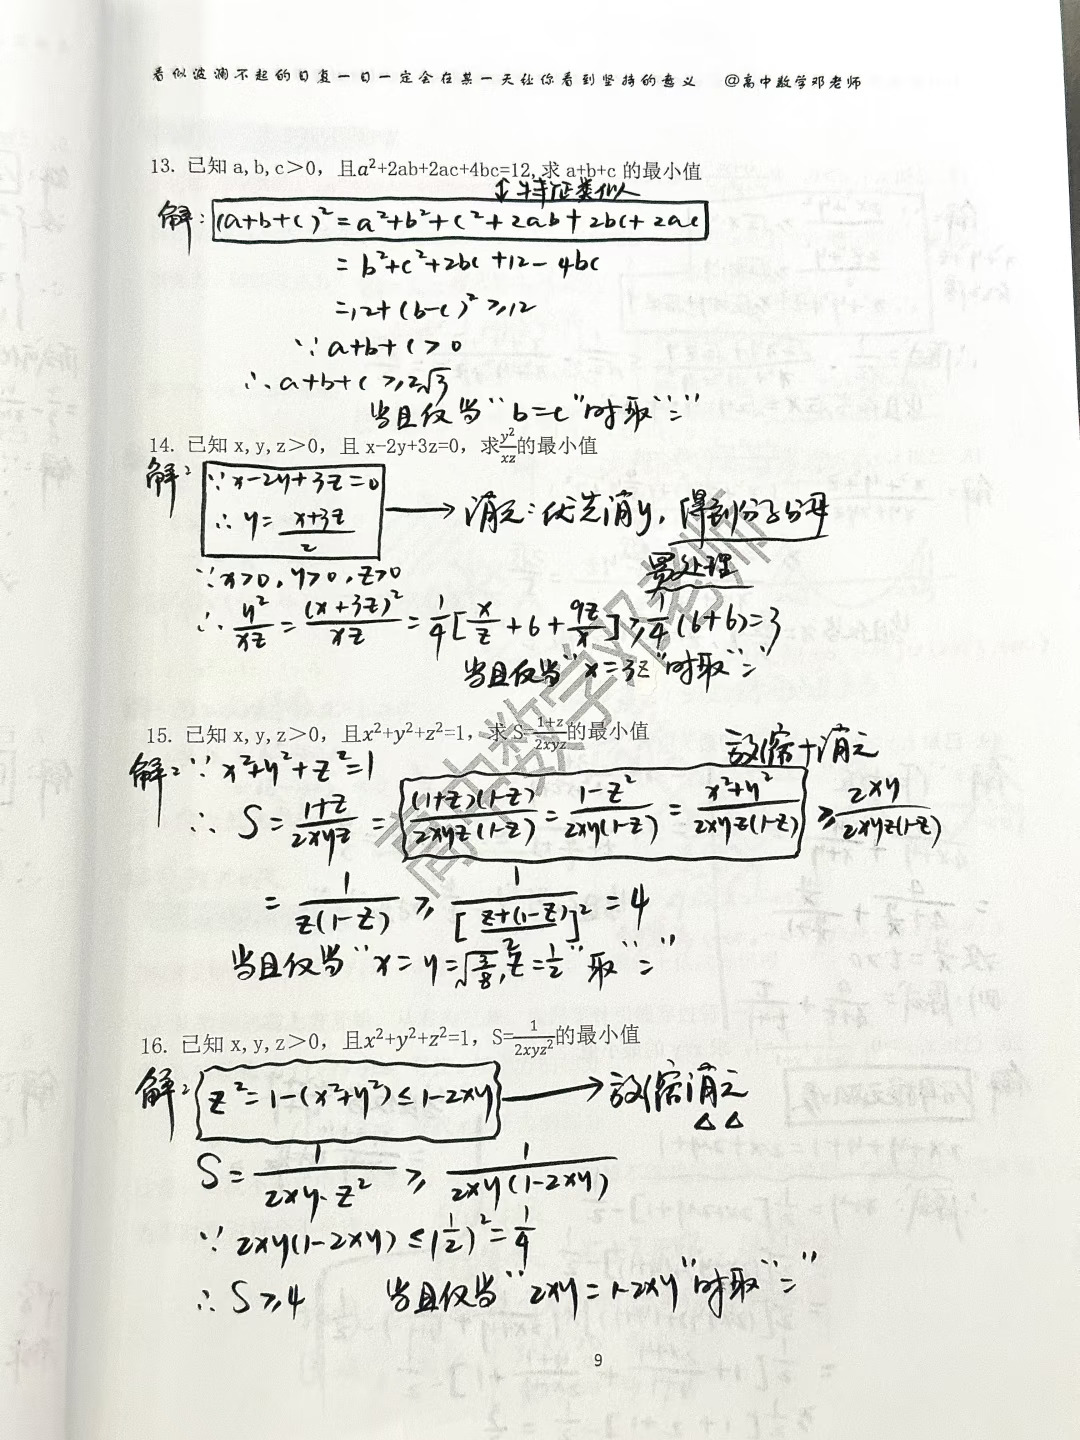 看似波澜不起的日复一日一定会在某一天让你看到坚持的意义 @高中数学邓老师
13. 已知 a,b,c＞0，且a²+2ab+2ac+4bc=12,求 a+b+c 的最小值
↕特征类似
解: (a+b+c)²=a²+b²+c²+2ab+2bc+2ac
=b²+c²+2bc+12-4bc
=12+(b-c)²≥12
∵a+b+c>0
∴a+b+c≥2√3
当且仅当"b=c"时取"="
14. 已知 x,y,z＞0，且 x-2y+3z=0，求y²/xz的最小值
解: ∵x-2y+3z=0
∴y=(x+3z)/2 → 消元:优先消y,得到分子分母
∵x>0,y>0,z>0 幂处理
∴y²/xz=(x+3z)²/xz=1/4[x/z+6+9z/x]≥1/4(6+6)=3
当且仅当"x=3z"时取"="
15. 已知 x,y,z＞0，且x²+y²+z²=1，求 S=(1+z)/2xyz的最小值
放缩+消元
解: ∵x²+y²+z²=1
∴S=(1+z)/2xyz=(1+z)(1-z)/2xyz(1-z)=(1-z²)/2xy(1-z)=(x²+y²)/2xyz(1-z)≥2xy/2xyz(1-z)
=1/z(1-z)≥1/[(z+(1-z))/2]²=4
当且仅当"x=y=√(3/8),z=1/2"取"="
16. 已知 x,y,z＞0，且x²+y²+z²=1，S=1/2xyz²的最小值
解: z²=1-(x²+y²)≤1-2xy → 放缩消元
△△
S=1/2xy·z²≥1/2xy(1-2xy)
∵2xy(1-2xy)≤(1/2)²=1/4
∴S≥4 当且仅当"2xy=1-2xy"时取"="
9
高中数学邓老师